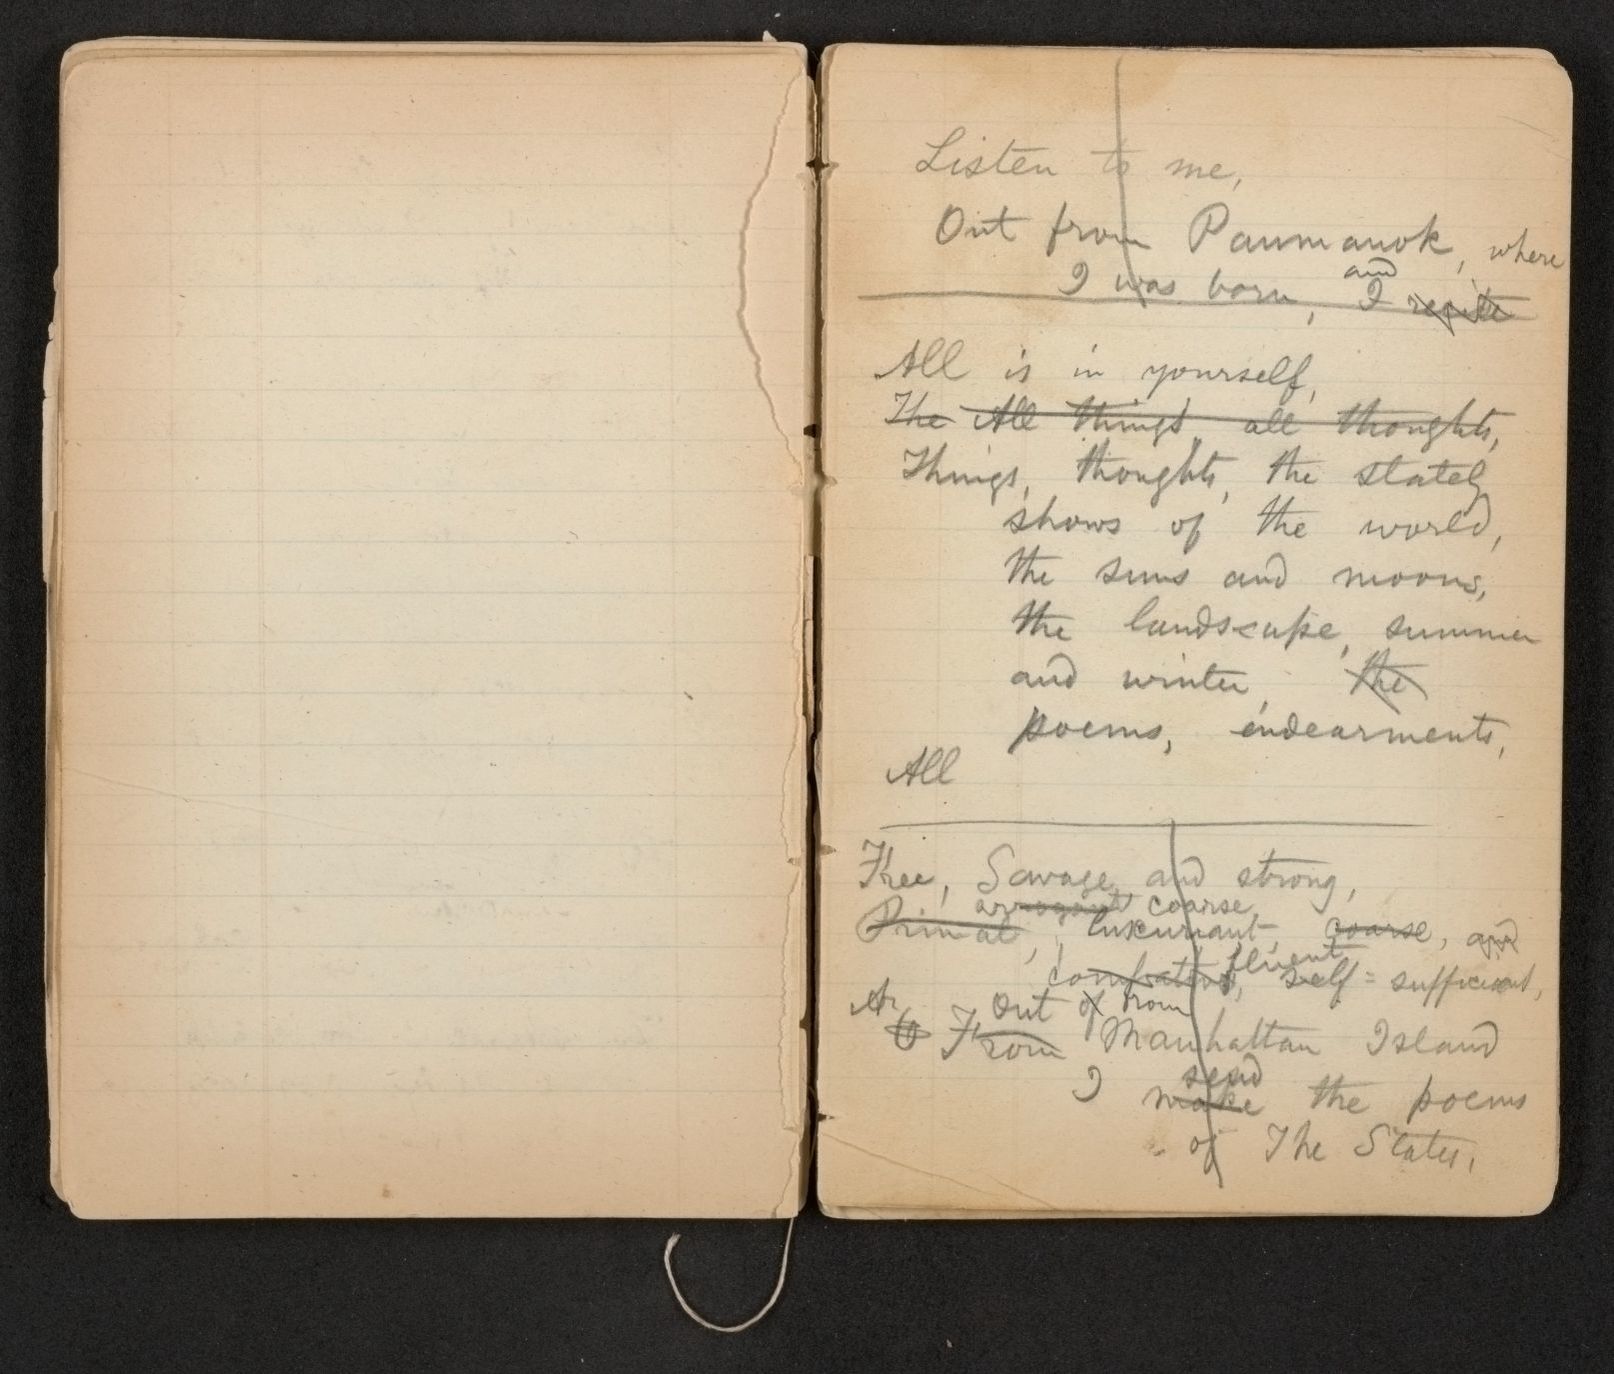 Listen to me,
Out from Paumanok, where
and
I was born, I recite
All is in yourself,
The All things, all thoughts,
Things, thoughts, the stately
shows of the world,
the suns and moons,
the landscape, summer
and winter, the
poems, endearments,
All
Free, Savage, and strong,
arrogant coarse,
Primal, luxuriant, coarse, and
fluent
combative, self=sufficient,
Ar
Out of from
O From Manhattan Island
send
I make the poems
of The States,